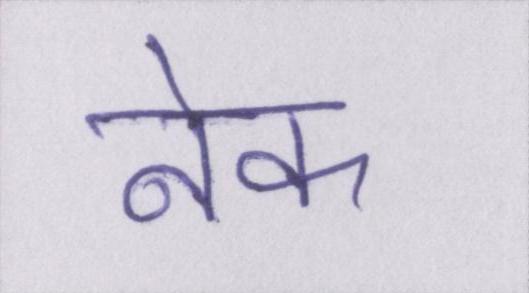 नेक